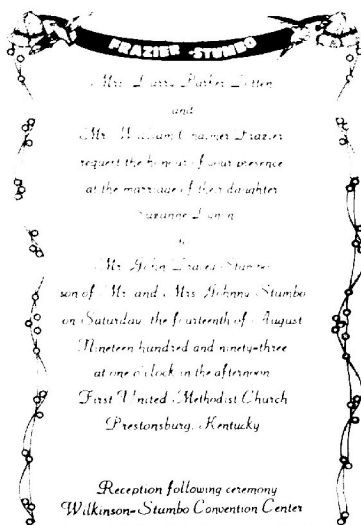 FRAZIER-STUMBO
Mrs. Larry Parker
and
Mr. William Chalmer Frazier
request the honour of your presence
at the marriage of their daughter
Suzanne
to
Mr. John
son of Mr. and Mrs. Johnny Stumbo
on Saturday, the fourteenth of August
Nineteen hundred and ninety-three
at one o'clock in the afternoon
First United Methodist Church
Prestonsburg, Kentucky
Reception following ceremony
Wilkinson-Stumbo Convention Center